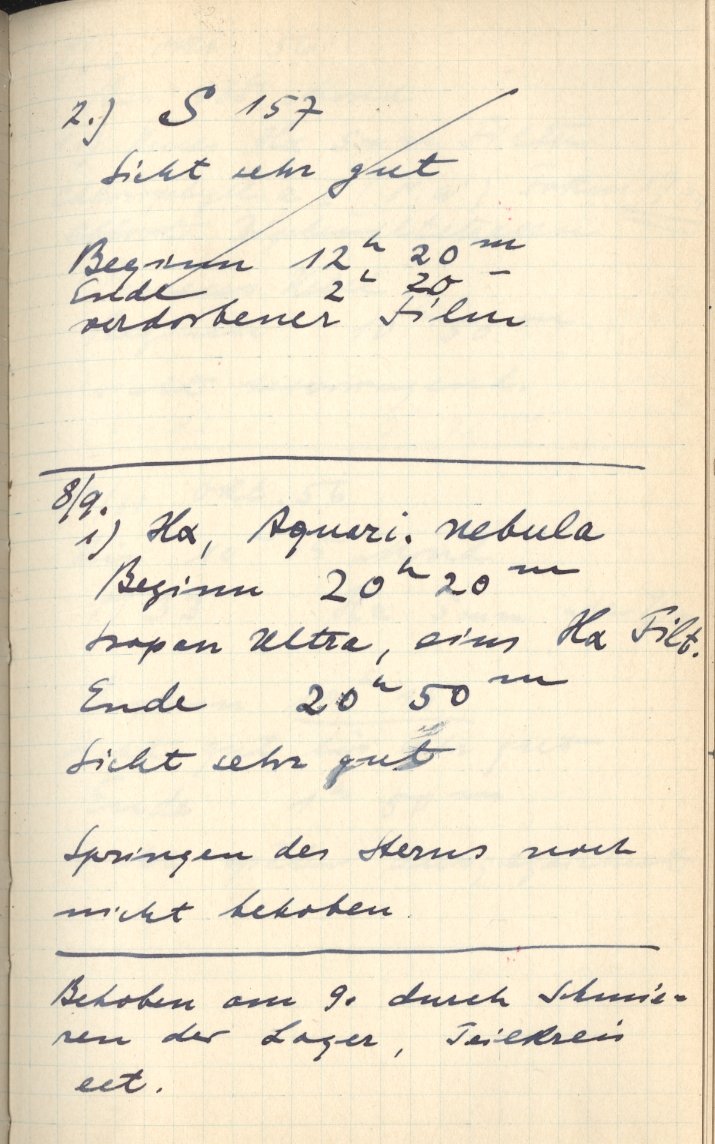 2.) S 157
Sicht sehr gut
Beginn 12h 20m
Ende 2h 20
verdorbener Film
8/9.
1) Hα, Aquari. nebula
Beginn 20h 20m
Isopan Ultra, eins Hα Filt.
Ende 20h 50m
Sicht sehr gut
Springen des Sterns noch
nicht behoben
Behoben am 9. durch Schmie-
ren der Lager, Teilkreis
ect.